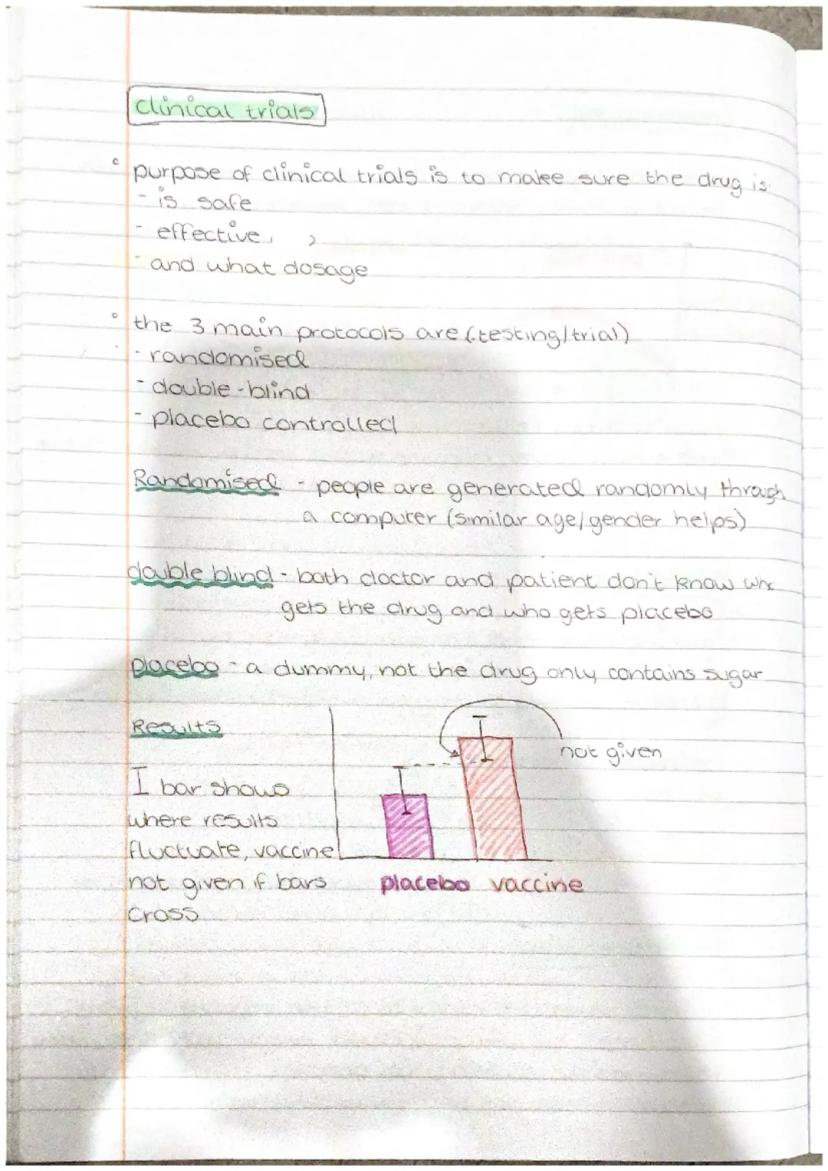 clinical trials
purpose of clinical trials is to make sure the drug is
- is safe
- effective, ,
- and what dosage
the 3 main protocols are (testing/trial)
- randomised
- double-blind
- placebo controlled
Randomised - people are generated randomly through
a computer (similar age/gender helps)
double blind - both doctor and patient don't know who
gets the drug and who gets placebo
placebo - a dummy, not the drug only contains sugar
Results
not given
I bar shows
where results
fluctuate, vaccine
not given if bars
cross
placebo vaccine